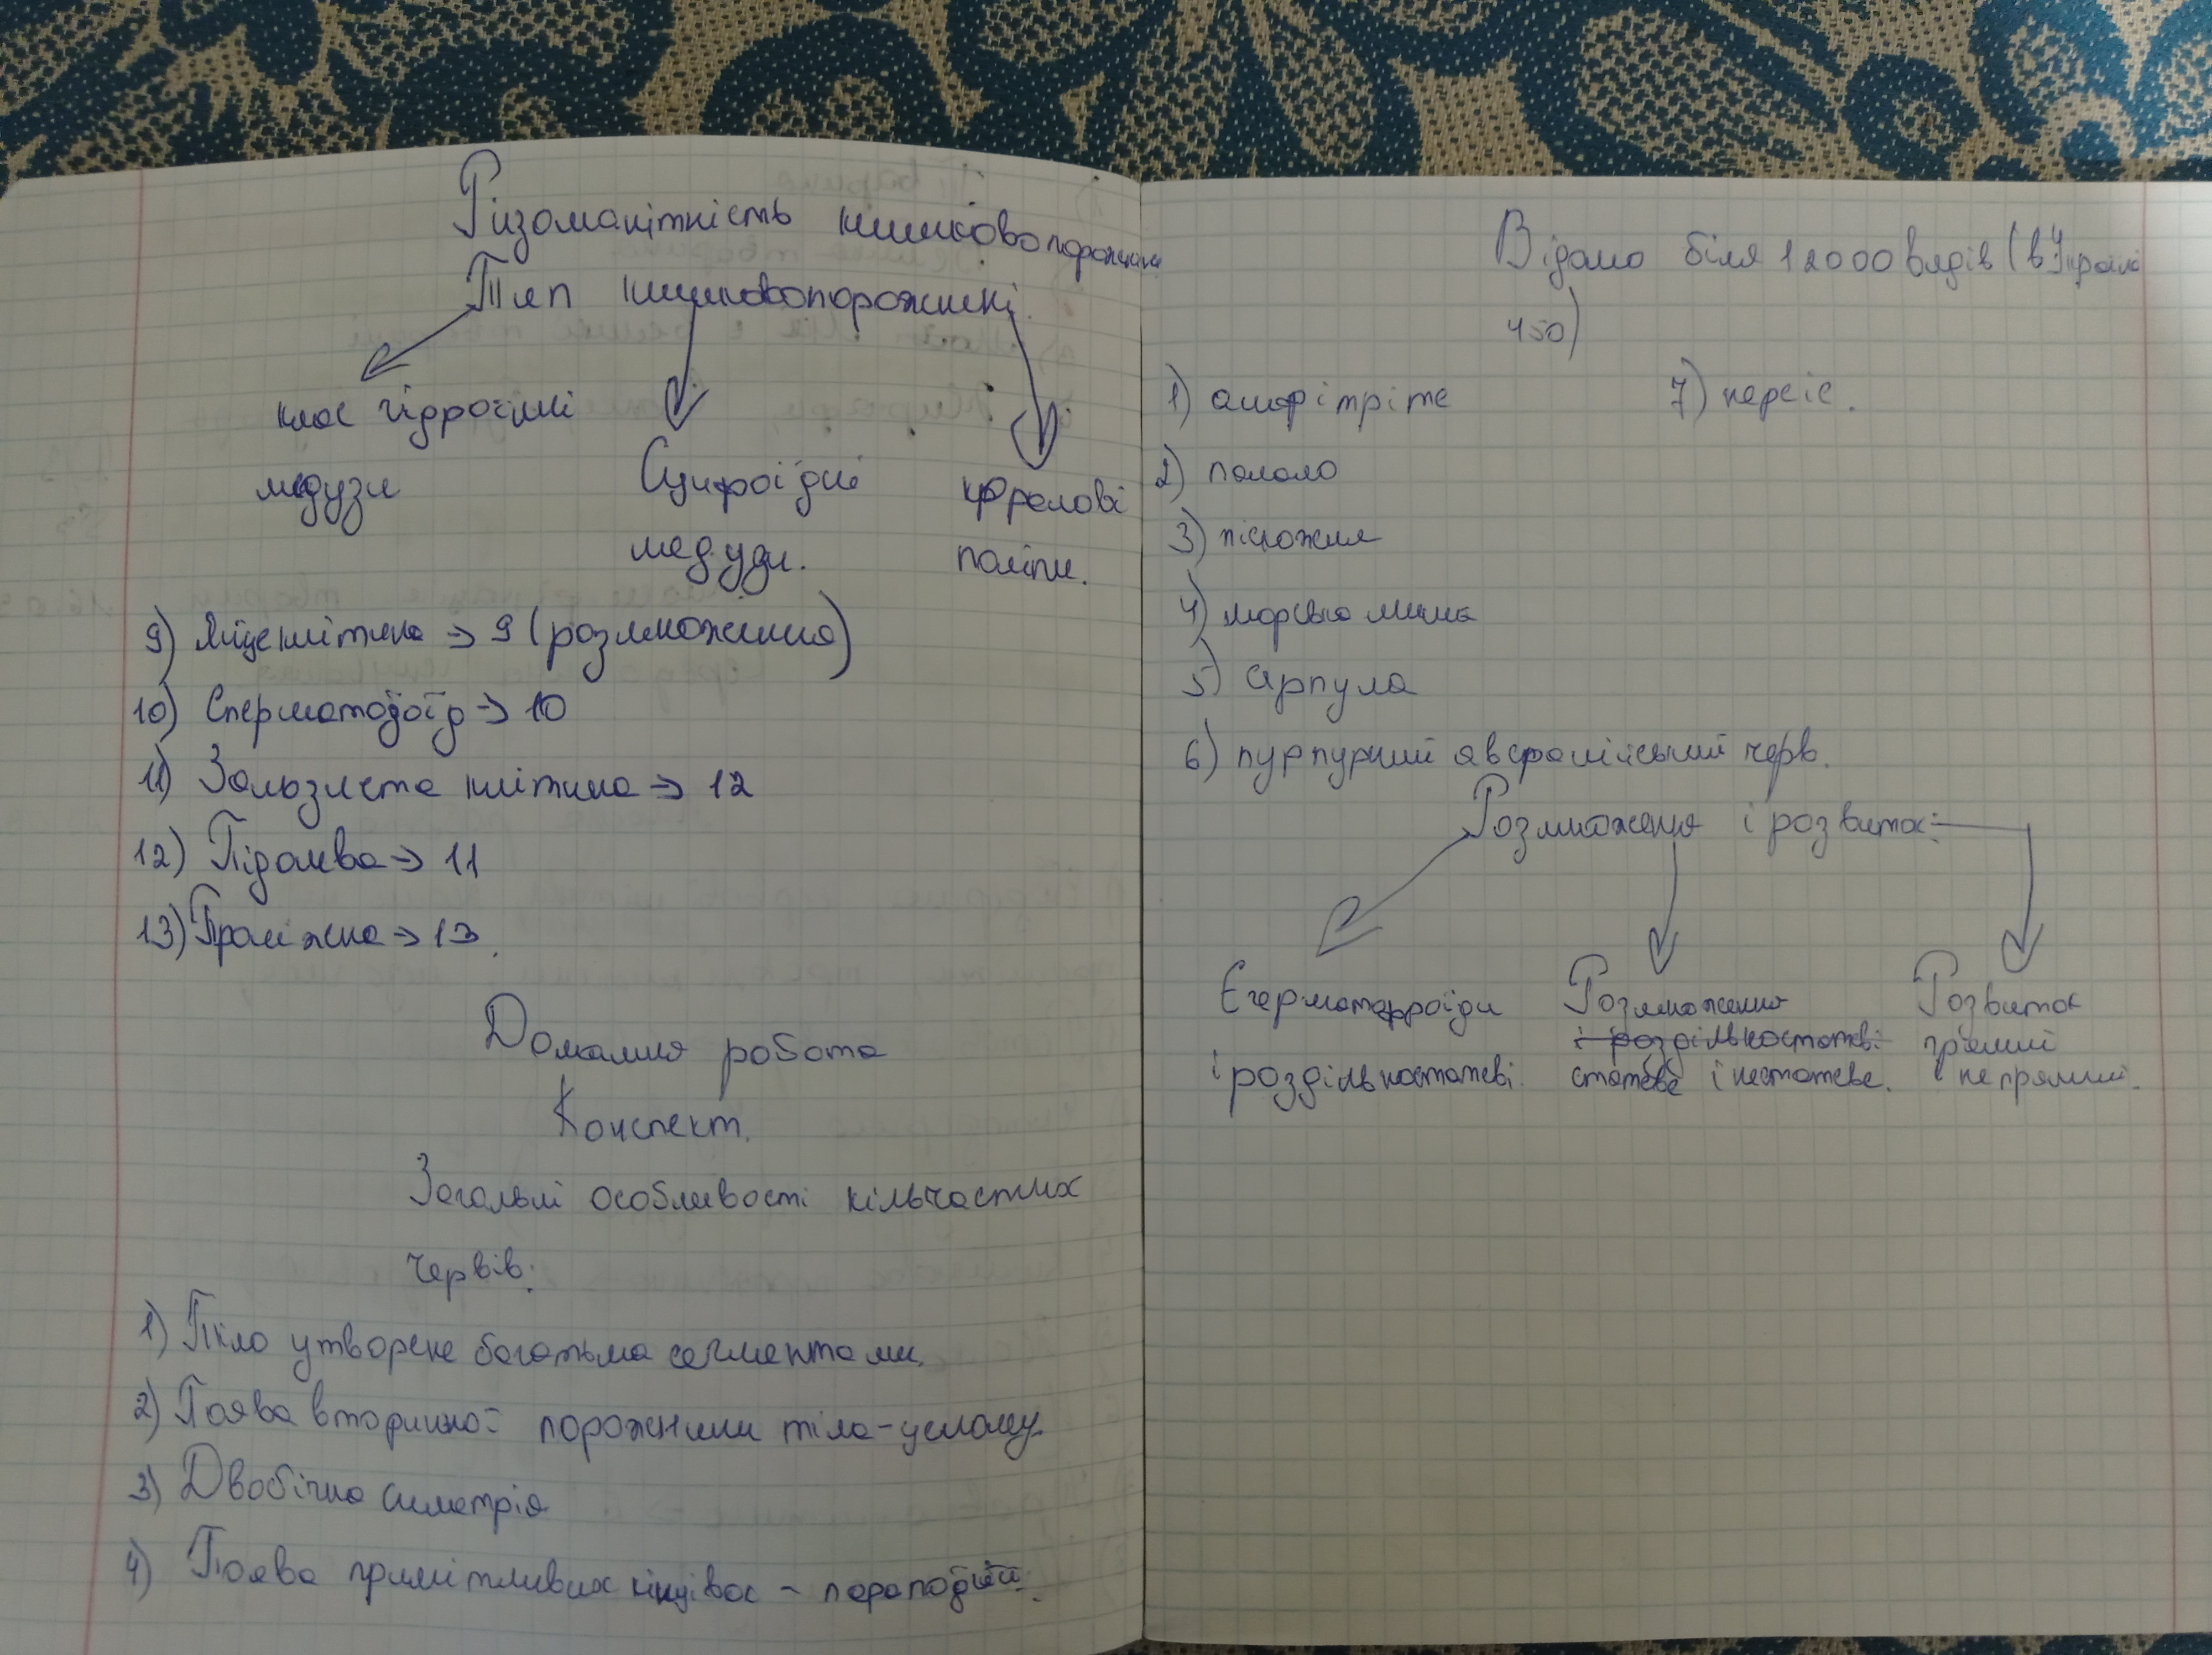 Різоманітність кишковопорожнинні
Тип кишковопорожнинні.
клас гідроїдні
медузи
Сцифоїдні
медузи.
коралові
поліпи.
9) Яйцеклітина → 9 (розмноження)
10) Сперматозоїд → 10
11) Залозиста клітина → 12
12) Підошва → 11
13) Проміжна → 13.
Домашня робота
Конспект.
Загальні особливості кільчастих
червів:
1) Тіло утворене багатьма сегментами.
2) Поява вторинної порожнини тіла - целому.
3) Двобічна симетрія
4) Поява примітивних кінцівок - параподій.
Відомо біля 12000 видів (в Україні
450)
1) амфітріте
2) палоло
3) піскожил
4) морська миша
5) серпула
6) пурпурний австралійський черв.
7) нереіс.
Розмноження і розвиток:
Є гермафродити
і роздільностатеві.
Розмноження
і роздільностатеві
статеве і нестатеве.
Розвиток
прямий
і непрямий.